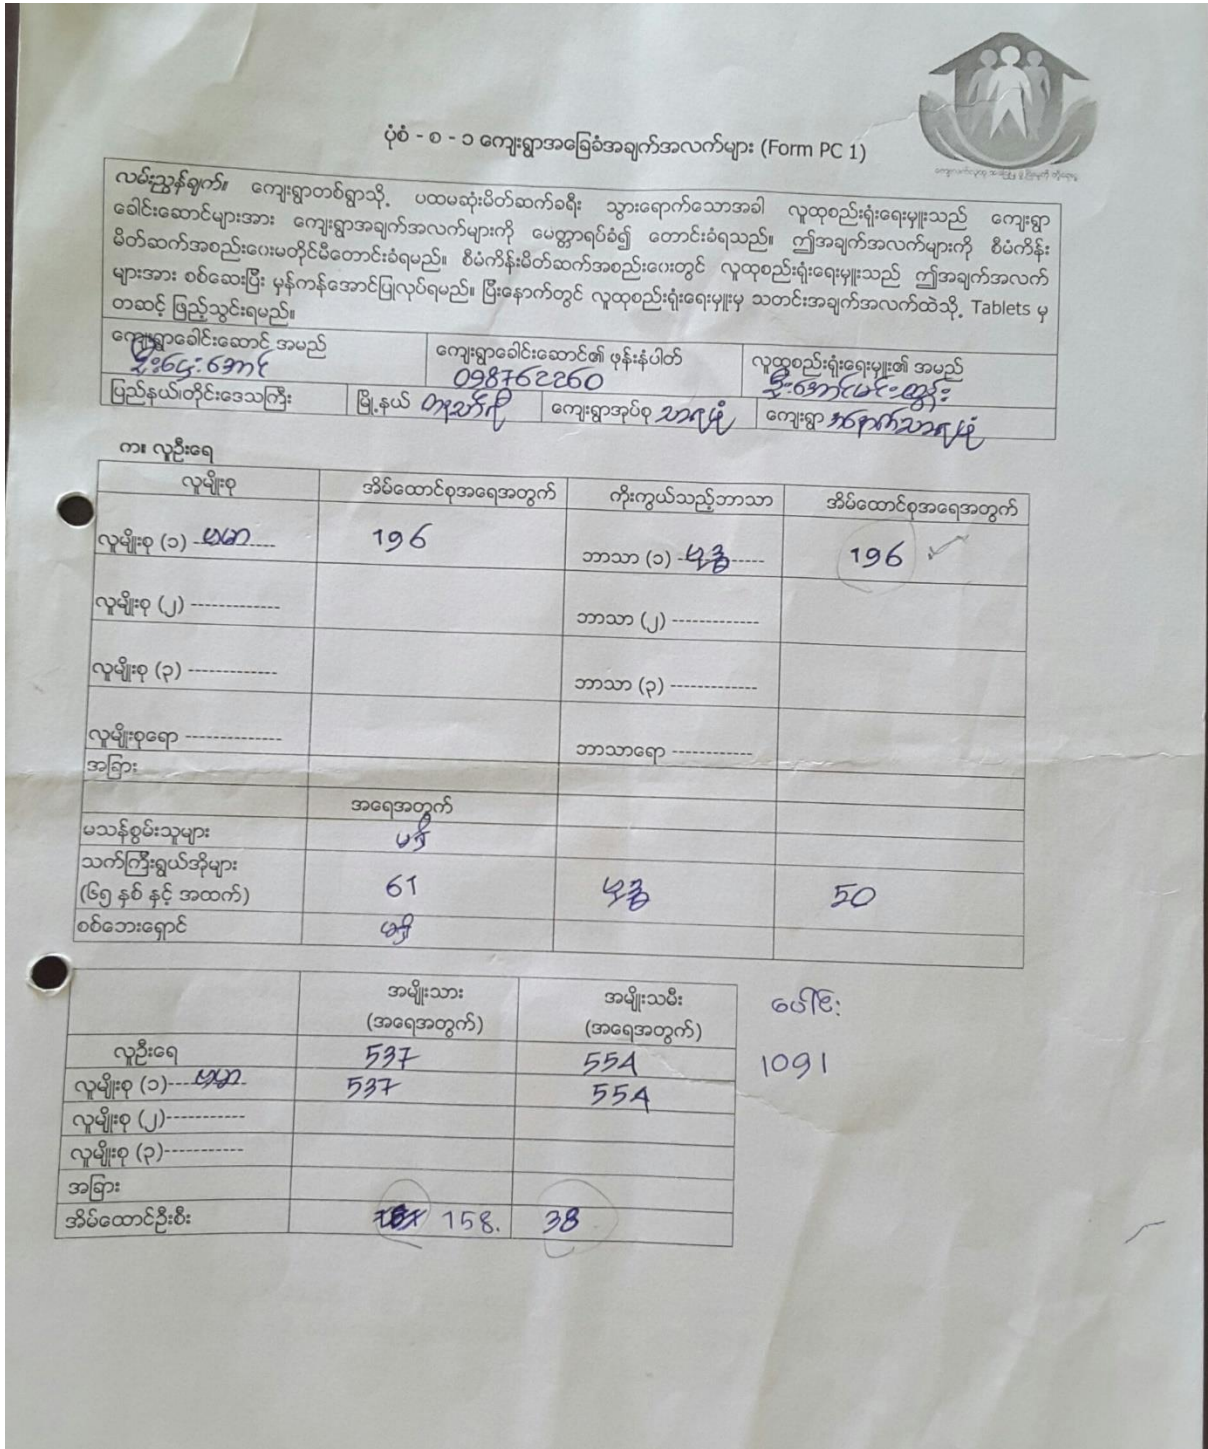 ပုံစံ - စ - ၁ ကျေးရွာအခြေခံအချက်အလက်များ (Form PC 1)
လမ်းညွှန်ချက်။ ကျေးရွာတစ်ရွာသို့ ပထမဆုံးမိတ်ဆက်ခရီး သွားရောက်သောအခါ လူထုစည်းရုံးရေးမှူးသည် ကျေးရွာ
ခေါင်းဆောင်များအား ကျေးရွာအချက်အလက်များကို မေတ္တာရပ်ခံ၍ တောင်းခံရသည်။ ဤအချက်အလက်များကို စီမံကိန်း
မိတ်ဆက်အစည်းဝေးမတိုင်မီတောင်းခံရမည်။ စီမံကိန်းမိတ်ဆက်အစည်းဝေးတွင် လူထုစည်းရုံးရေးမှူးသည် ဤအချက်အလက်
များအား စစ်ဆေးပြီး မှန်ကန်အောင်ပြုလုပ်ရမည်။ ပြီးနောက်တွင် လူထုစည်းရုံးရေးမှူးမှ သတင်းအချက်အလက်ထဲသို့ Tablets မှ
တဆင့် ဖြည့်သွင်းရမည်။
ကျေးရွာခေါင်းဆောင် အမည် ကျေးရွာခေါင်းဆောင်၏ ဖုန်းနံပါတ် လူထုစည်းရုံးရေးမှူး၏ အမည်
098762260 ဦးအောင်မင်းထွန်း
ပြည်နယ်/တိုင်းဒေသကြီး မြို့နယ် ကျေးရွာအုပ်စု ကျေးရွာ
က။ လူဦးရေ
လူမျိုးစု အိမ်ထောင်စုအရေအတွက် ကိုးကွယ်သည့်ဘာသာ အိမ်ထောင်စုအရေအတွက်
လူမျိုးစု (၁) ဗမာ 196 ဘာသာ (၁) ဗုဒ္ဓ 196
လူမျိုးစု (၂) ------------- ဘာသာ (၂) -------------
လူမျိုးစု (၃) ------------- ဘာသာ (၃) -------------
လူမျိုးစုရော -------------- ဘာသာရော ------------
အခြား
အရေအတွက်
မသန်စွမ်းသူများ မရှိ
သက်ကြီးရွယ်အိုများ
(၆၅ နှစ် နှင့် အထက်) 61 ဗုဒ္ဓ 50
စစ်ဘေးရှောင် မရှိ
အမျိုးသား အမျိုးသမီး ပေါင်း
(အရေအတွက်) (အရေအတွက်)
လူဦးရေ 537 554 1091
လူမျိုးစု (၁)---ဗမာ 537 554
လူမျိုးစု (၂)-----------
လူမျိုးစု (၃)-----------
အခြား
အိမ်ထောင်ဦးစီး 158. 38